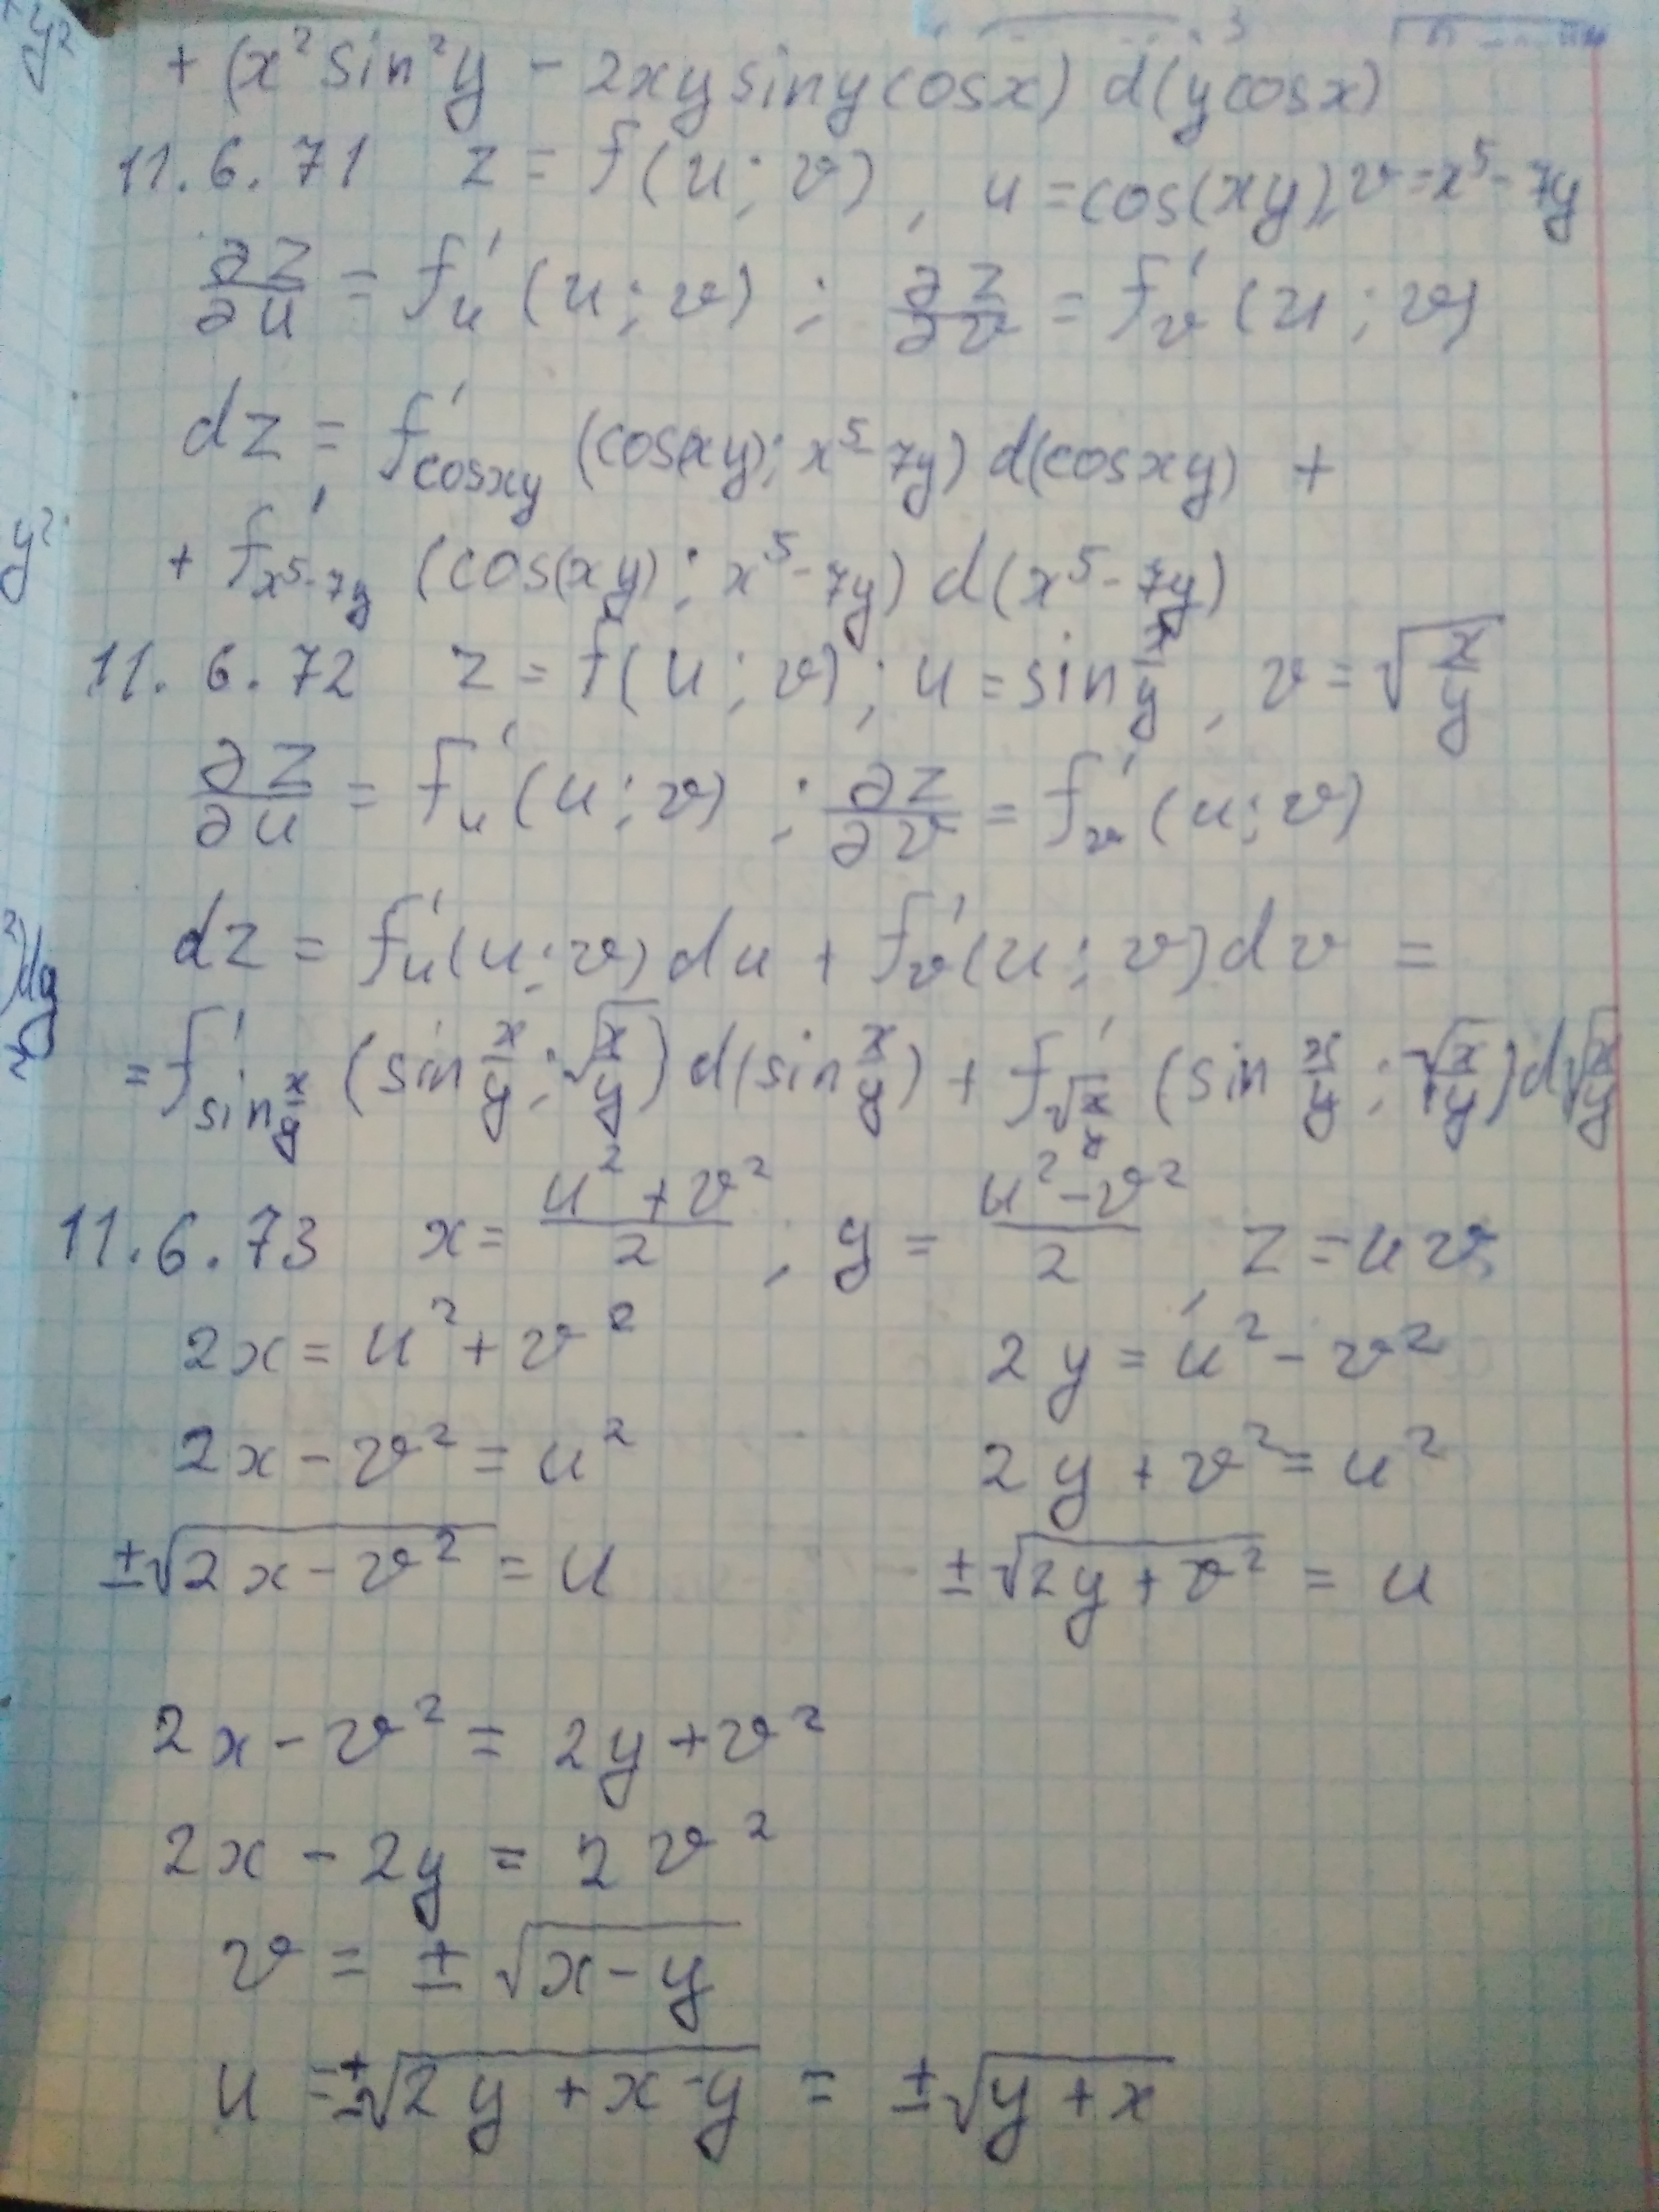 + (x² sin² y − 2xy sin y cos x) d(y cos x)
11.6.71 z = f(u; v), u = cos(xy), v = x⁵ − 7y
∂z/∂u = f'ᵤ (u; v); ∂z/∂v = f'ᵥ (u; v)
dz = f'_{cos xy} (cos(xy); x⁵ − 7y) d(cos xy) +
+ f'_{x⁵−7y} (cos(xy); x⁵ − 7y) d(x⁵ − 7y)
11.6.72 z = f(u; v); u = sin x/y, v = √(x/y)
∂z/∂u = f'ᵤ (u; v); ∂z/∂v = f'ᵥ (u; v)
dz = f'ᵤ(u; v) du + f'ᵥ(u; v) dv =
= f'_{sin x/y} (sin x/y; √(x/y)) d(sin x/y) + f'_{√(x/y)} (sin x/y; √(x/y)) d√(x/y)
11.6.73 x = (u² + v²)/2; y = (u² − v²)/2, z = uv
2x = u² + v² 2y = u² − v²
2x − v² = u² 2y + v² = u²
±√(2x − v²) = u ±√(2y + v²) = u
2x − v² = 2y + v²
2x − 2y = 2v²
v = ±√(x − y)
u = ±√(2y + x − y) = ±√(y + x)